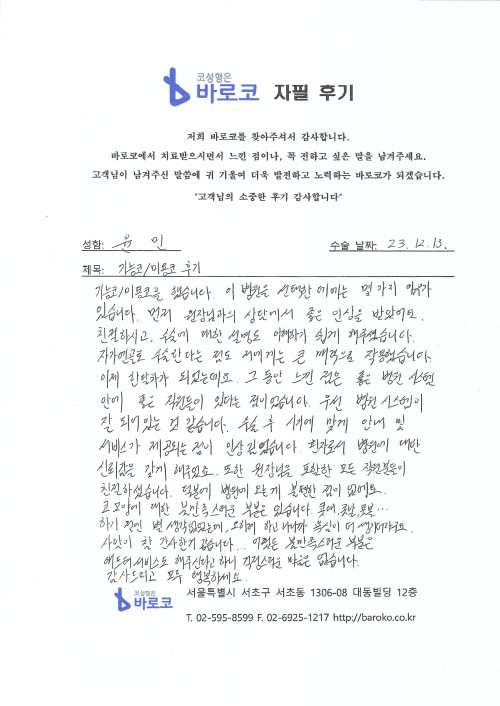 코성형은
바로코 자필 후기
저희 바로코를 찾아주셔서 감사합니다.
바로코에서 치료받으시면서 느낀 점이나, 꼭 전하고 싶은 말을 남겨주세요.
고객님이 남겨주신 말씀에 귀 기울여 더욱 발전하고 노력하는 바로코가 되겠습니다.
"고객님의 소중한 후기 감사합니다"
성함: 윤 민 수술 날짜: 23.12.13.
제목: 기능코/미용코 후기
기능코/미용코를 했습니다. 이 병원을 선택한 이유에는 몇 가지 이유가
있습니다. 먼저 원장님과의 상담에서 좋은 인상을 받았어요.
친절하시고, 수술에 대한 설명도 이해하기 쉽게 해주셨습니다.
자가연골로 수술한다는 점도 저에게는 큰 매력으로 작용했습니다.
이제 한달차가 되었는데요. 그 동안 느낀 점은 좋은 병원 시스템
안에 좋은 직원들이 있다는 점이었습니다. 우선 병원 시스템이
잘 되어있는 것 같습니다. 수술 후 시기에 맞게 안내 및
서비스가 제공되는 점이 인상 깊었습니다. 환자로서 병원에 대한
신뢰감을 갖게 해주었죠. 또한 원장님을 포함한 모든 직원분들이
친절하셨습니다. 덕분에 병원에 오는게 불편한 점이 없어요.
코 모양에 대한 불만족스러운 부분은 있습니다. 콧대, 콧볼...
하기 전엔 별 생각없었는데, 오히려 하고 나니까 욕심이 더 생기더라구요.
사람이 참 간사한거 같습니다... 어쨌든 불만족스러운 부분은
애프터서비스도 해주신다고 하니 걱정스러운 마음은 없습니다.
감사드리고 모두 행복하세요.
코성형은
바로코 서울특별시 서초구 서초동 1306-08 대동빌딩 12층
T. 02-595-8599 F. 02-6925-1217 http://baroko.co.kr